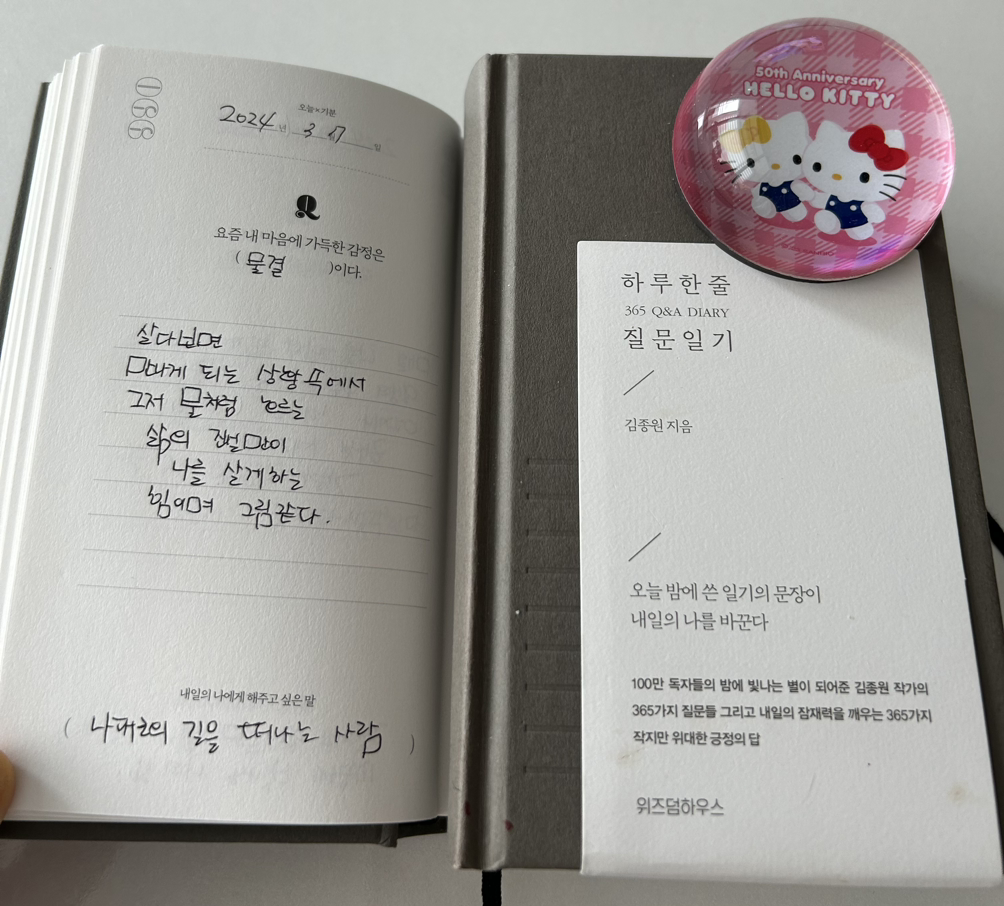 오늘×기분
2024년 3월 17일
Q
요즘 내 마음에 가득한 감정은
( 물결 )이다.
살다보면
마주하게 되는 상황 속에서
그저 물처럼 흐르는
삶의 진실만이
나를 살게하는
힘이며 그림같다.
내일의 나에게 해주고 싶은 말
( 나대로의 길을 떠나는 사람 )
50th Anniversary
HELLO KITTY
하루 한 줄
365 Q&A DIARY
질문 일기
김종원 지음
오늘 밤에 쓴 일기의 문장이
내일의 나를 바꾼다
100만 독자들의 밤에 빛나는 별이 되어준 김종원 작가의
365가지 질문들 그리고 내일의 잠재력을 깨우는 365가지
작지만 위대한 긍정의 답
위즈덤하우스